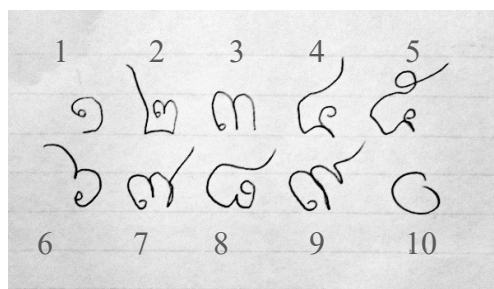 1 2 3 4 5
๑ ๒ ๓ ๔ ๕
๖ ๗ ๘ ๙ ๐
6 7 8 9 10